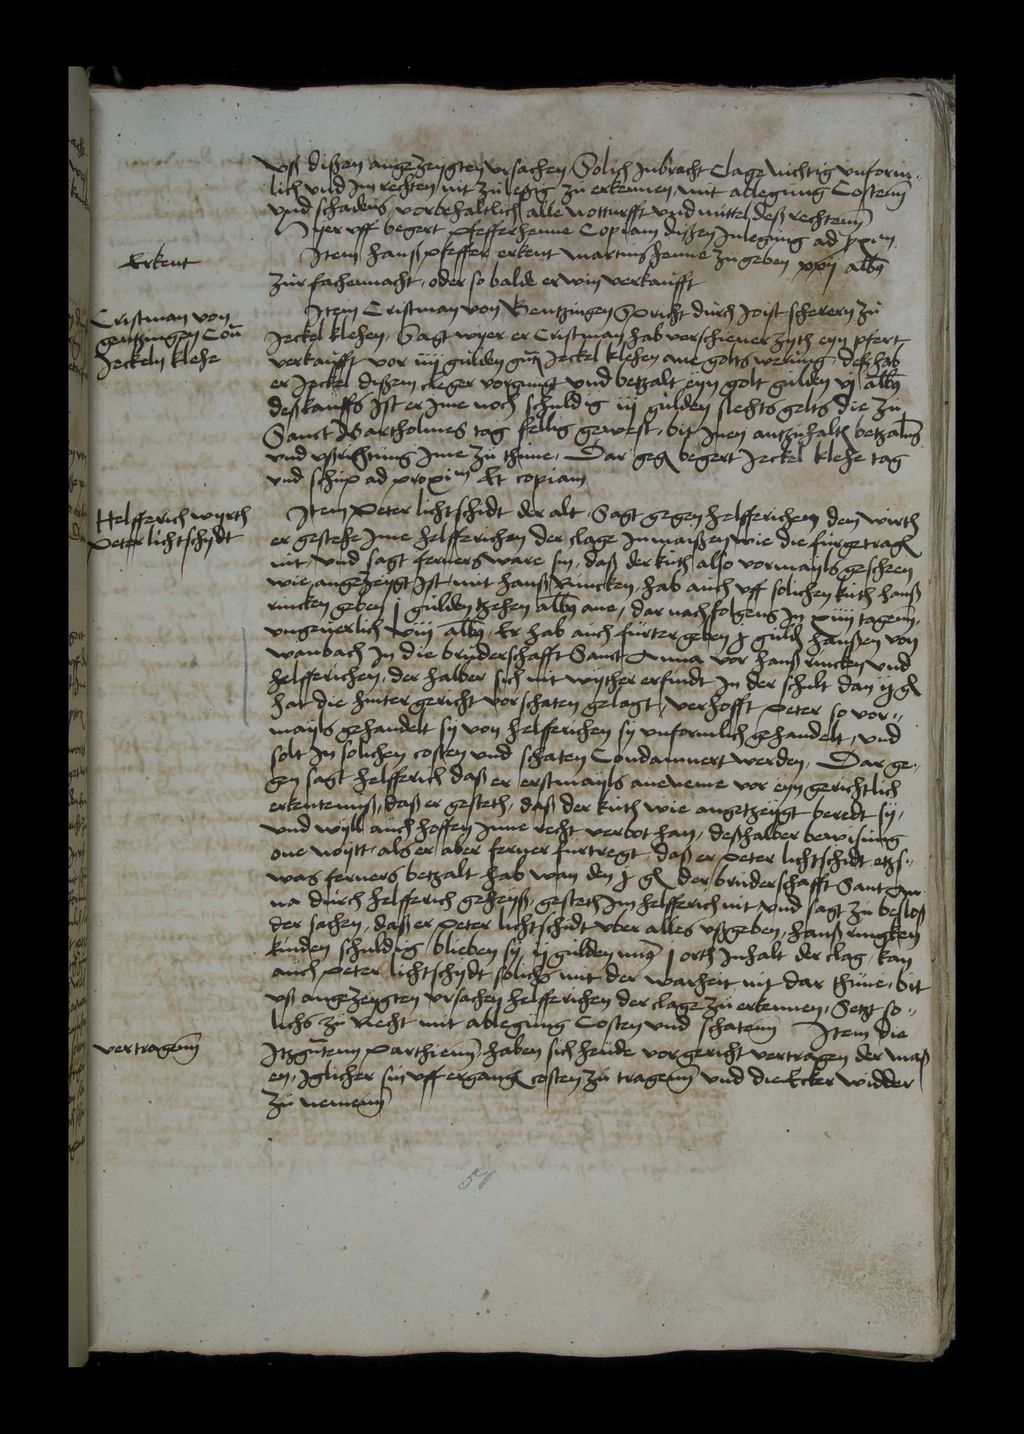 uß dißen angezeygten ursachen, Solich Inbracht Clage nichtig unform-
lich und Im rechten nit zulesig zu erkennen, mit ablegung Costenn
und schadens, vorbehaltlich alle notturfft und mittel deß rechtenn
Hyer uff begert Pfefferhenne Copiam dißen Inlegung ad pxm
Erkent
Item Hanß Pfeffer erkent Martins henne zugeben xxij albus
zur fachennacht, oder so balde er win verkaufft
Cristman von
gentzingen Con
Jeckeln klehe
Item Cristman von Gentzingen Spricht durch Joist scherern zu
Jeckel klehen, Sagt wyer er Cristman hab verschiener zyth eyn pfert
verkaufft vor iiij gulden Jeckel klehen ane golts werung, deß hab
er Jeckel dißem cleger vorgnugt und betzalt eyn golt gulden vj albus
deß kauffs Ist er Ime noch schuldig iij gulden slechts gelts die zu
Sanct Bartholmes tag fellig gewest, bit Inen antzuhalten betzalung
und ußrichtung Ime zu thune, Dar gegen begert Jeckel klehe tag
und schup ad proxim Et copiam
Helfferich wyrth
Peter lichtschydt
Item Peter lichtschidt der alt, Sagt gegen helfferichen den wirth
er gestehe Ime helfferichen der clage Inmaißen wie die furgetragen
nit, und sagt ferners ware sin, daß der kuth also vormayls gescheen
wie angezeygt Ist mit hanß Rincken, hab auch uff solichen kuth hanß
rincken geben j gulden tzehen albus ane, dar nach folgens In xiiij tagenn
ungeverlich viij albus, Er hab auch furter geben j gulden hanßen von
wanbach In die bruderschafft Sanct Anna vor hanß rincken und
helfferichen, der halber sich nit wyther erfindt In der schult dan ij gl
hat die hinter gericht vor schaten gelagt, verhofft Peter so vor-
mayls gehandelt sy von helfferichen sy unformlich gehandelt, und
solt In solichen costen und schaten Condamnert werden, Dar ge-
gen sagt helfferich daß er erstmayls aneneme vor eyn gerichtlich
erkentenniß, daß er gesteth, daß der kuth wie angetzeygt beredt sy,
und wyll auch hoffen Inne recht verbot han, deßhalber bewisung
one noytt, als er aber ferner furtregt, daß er Peter lichtschidt etzs-
was ferners betzalt hab wan den j gl der bruderschafft Sant An
na durch helfferich geheyß, gesteth Im helfferich nit und sagt zu besloß
der sachen, daß er Peter lichtschidt uber alles ußgeben, hanß ringken
kinden schuldig blieben sy, ij gulden j orth Inhalt der clag, kan
auch Peter lichtschydt solichs mit der warheit nit dar thune, bit
uß angezeygten ursachen helfferichen der clage zu erkennen, Setzt so-
lichs zu Recht mit ablegung Costen und schatenn
vertragenn
Item die
Itzgutenn Parthienn, haben sich heude vor gericht vertragen der maß
en, Iglicher sin uff ergangen costen zu tragenn und die Ecker widder
zu nemenn
50